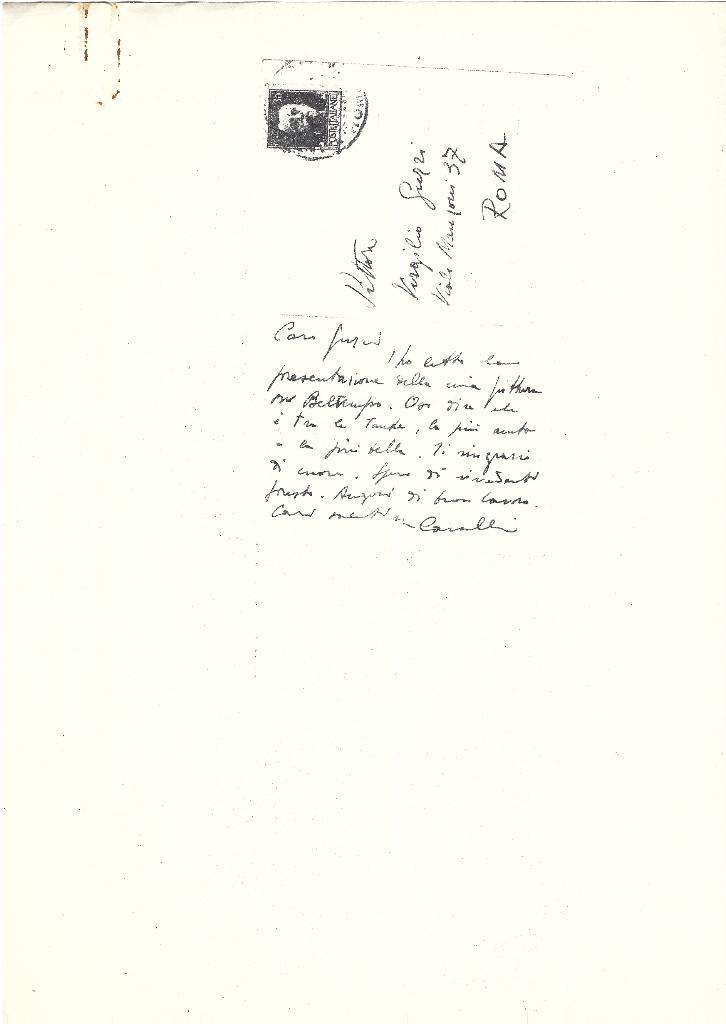 POSTE ITALIANE
Pittore
Virgilio Guzzi
Viale Manzoni 37
ROMA
Caro Guzzi
ho letto la
presentazione della mia pittura
su Beltempo. Oso dire che
è tra le tante, la più acuta
e la più bella. Ti ringrazio
di cuore. Spero di rivederti
presto. Auguri di buon lavoro.
Cavalli